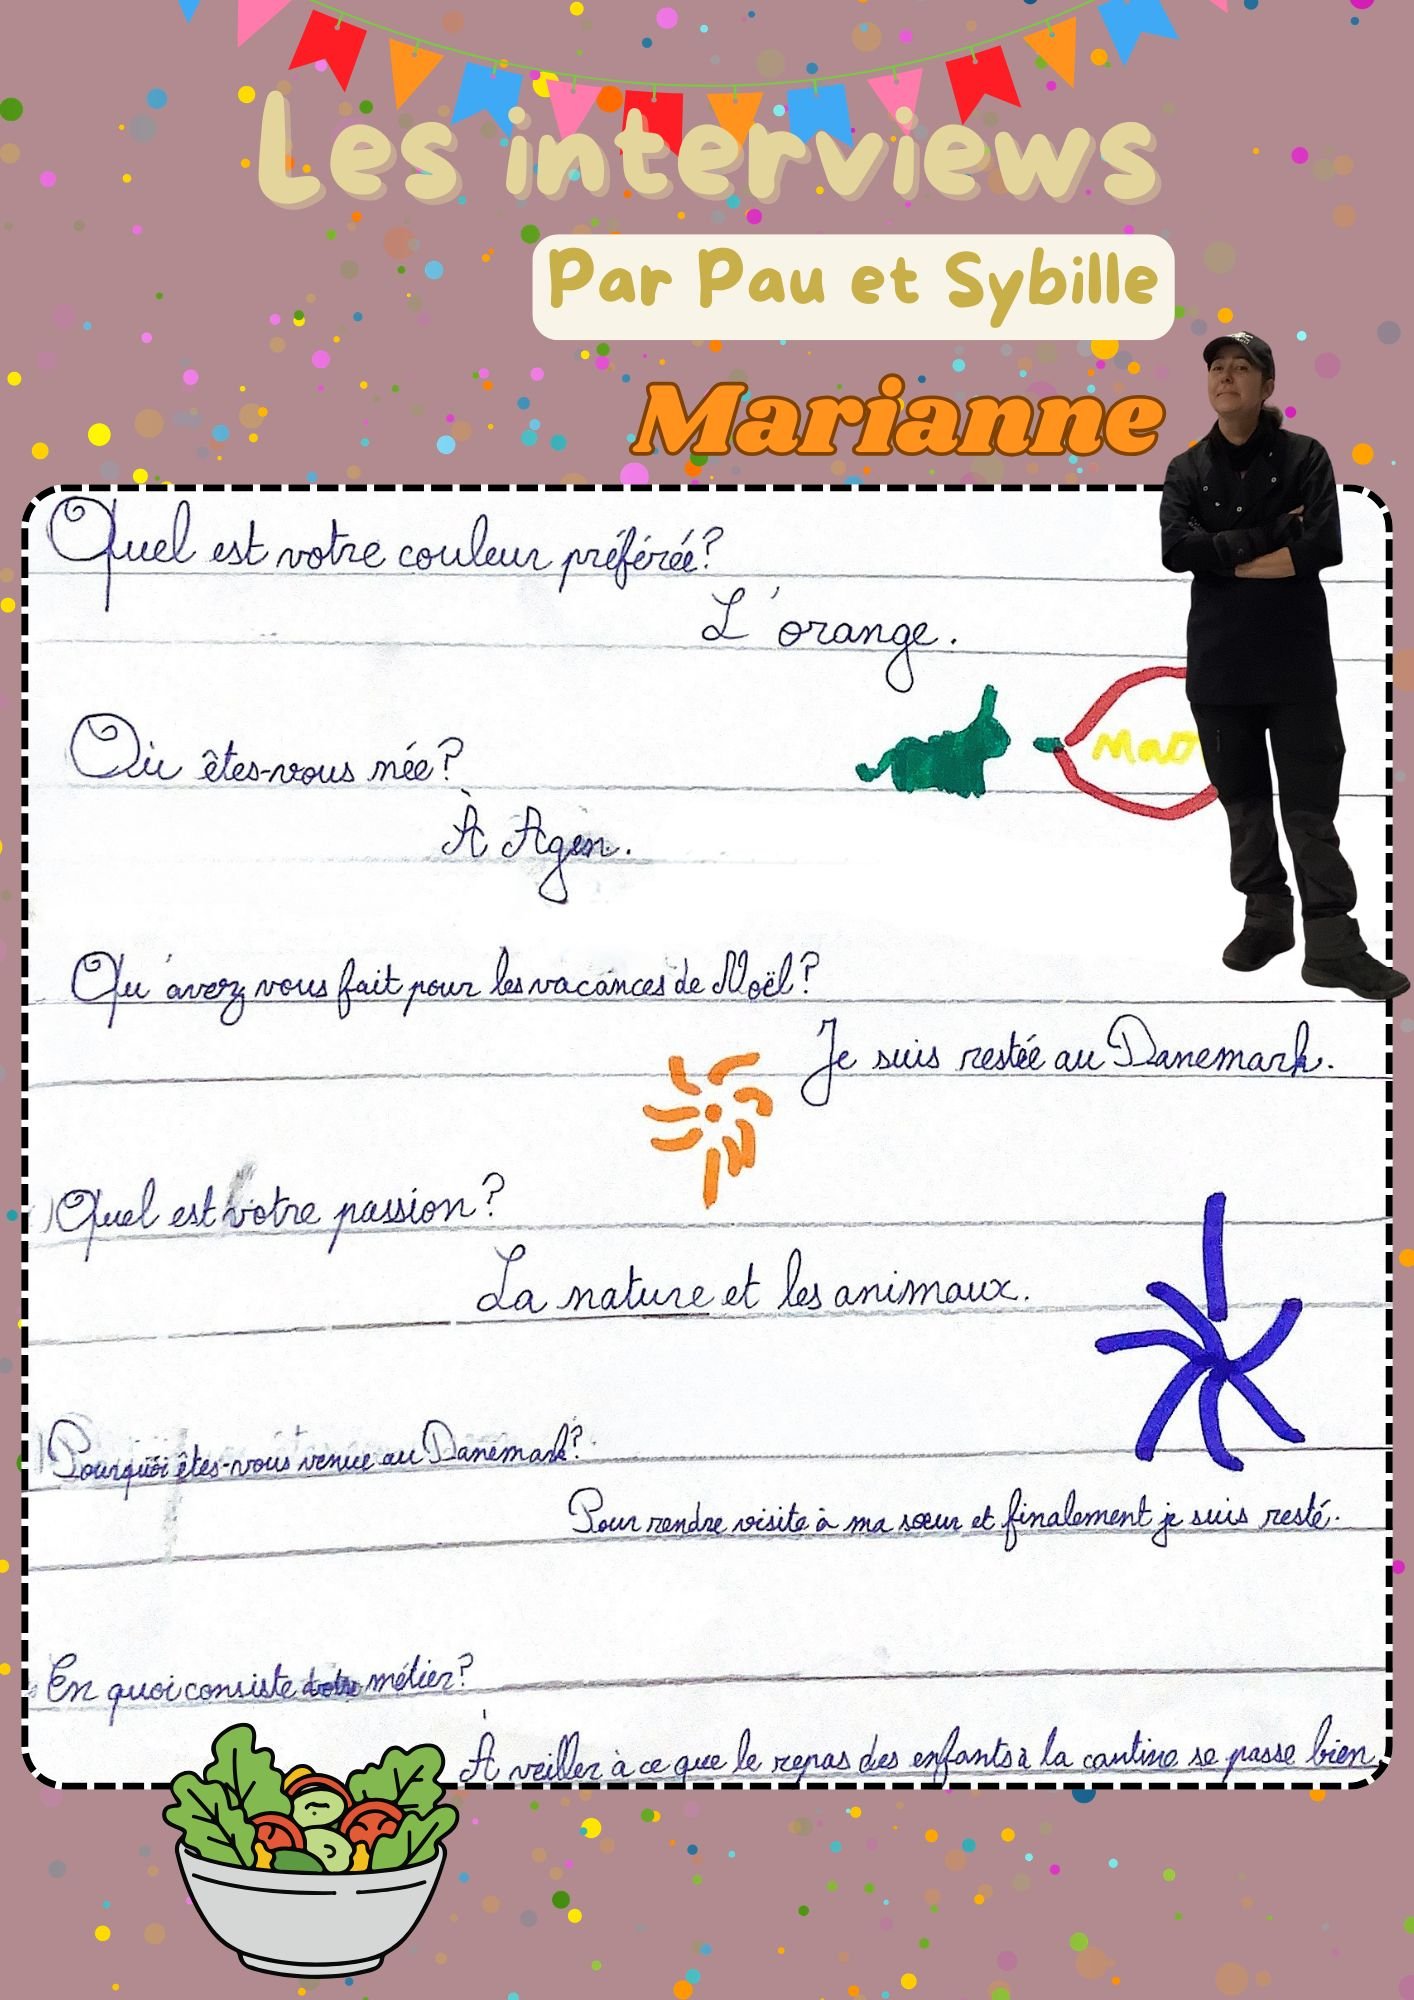 Les interviews
Par Pau et Sybille
Marianne
Quel est votre couleur préférée?
L'orange.
Où êtes-vous née?
À Agen.
Qu'avez vous fait pour les vacances de Noël?
Je suis restée au Danemark.
Quel est votre passion?
La nature et les animaux.
Pourquoi êtes-vous venue au Danemark?
Pour rendre visite à ma sœur et finalement je suis resté.
En quoi consiste votre métier?
À veiller à ce que le repas des enfants à la cantine se passe bien